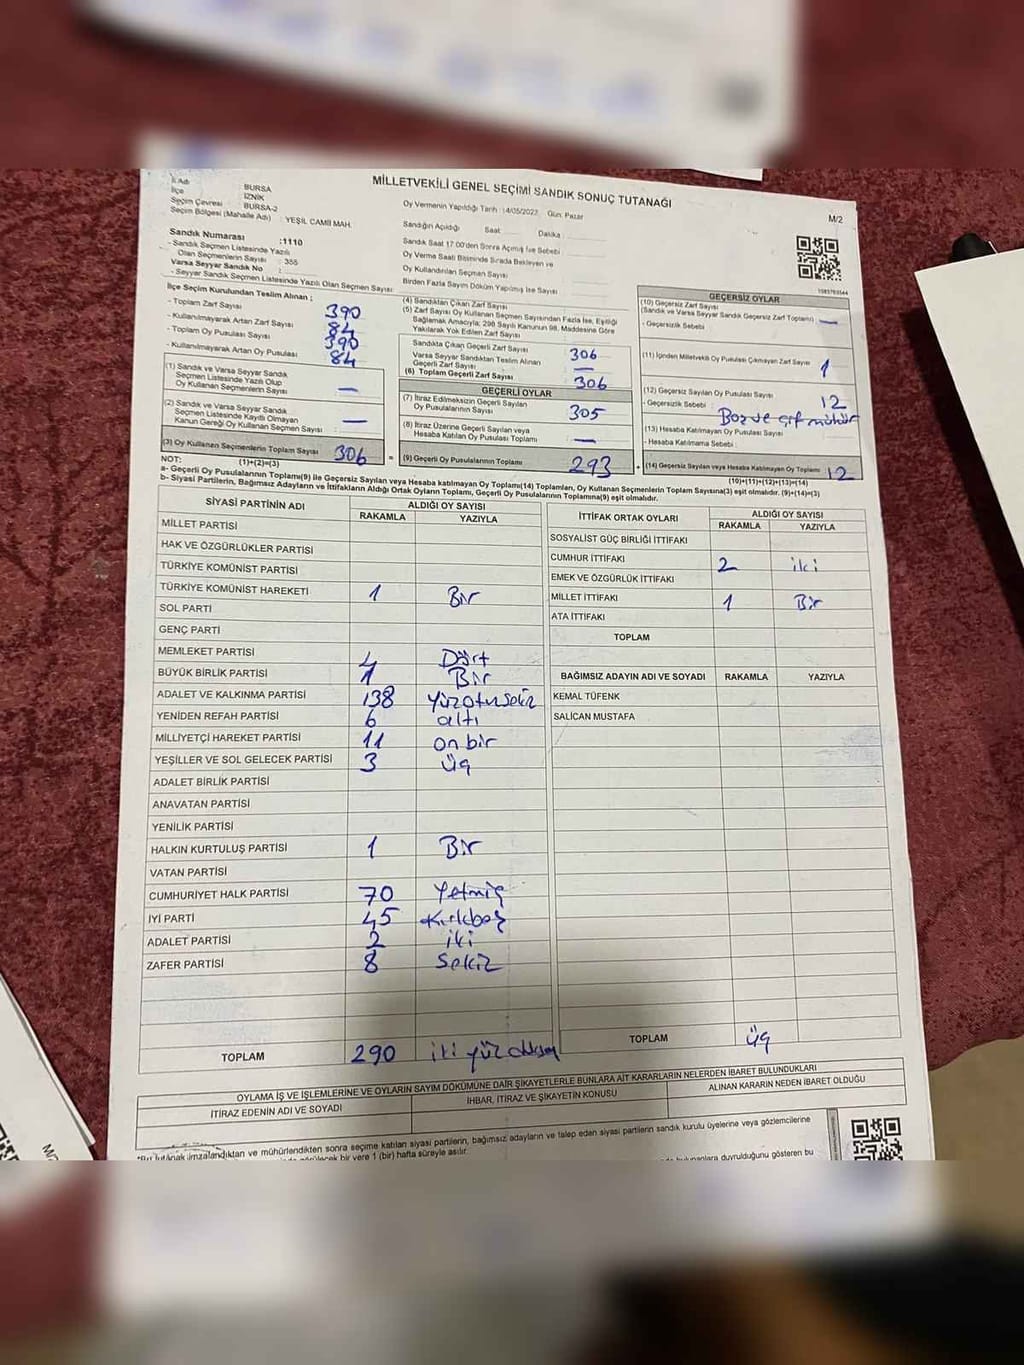 MİLLETVEKİLİ GENEL SEÇİMİ SANDIK SONUÇ TUTANAĞI
M/2
İl Adı : BURSA
İlçe : İZNİK
Seçim Çevresi : BURSA-2
Seçim Bölgesi (Mahalle Adı) : YEŞİL CAMİİ MAH.
Sandık Numarası :1110
- Sandık Seçmen Listesinde Yazılı
Olan Seçmenlerin Sayısı : 355
Varsa Seyyar Sandık No :
- Seyyar Sandık Seçmen Listesinde Yazılı Olan Seçmen Sayısı
Oy Vermenin Yapıldığı Tarih : 14/05/2023 Gün: Pazar
Sandığın Açıldığı Saat Dakika :
Sandık Saat 17:00'den Sonra Açılmış İse Sebebi
Oy Verme Saati Bitiminde Sırada Bekleyen ve
Oy Kullandırılan Seçmen Sayısı
Birden Fazla Sayım Döküm Yapılmış İse Sayısı
İlçe Seçim Kurulundan Teslim Alınan ;
- Toplam Zarf Sayısı 390
- Kullanılmayarak Artan Zarf Sayısı 84
- Toplam Oy Pusulası Sayısı 390
- Kullanılmayarak Artan Oy Pusulası 84
(1) Sandık ve Varsa Seyyar Sandık
Seçmen Listesinde Yazılı Olup
Oy Kullanan Seçmenlerin Sayısı —
(2) Sandık ve Varsa Seyyar Sandık
Seçmen Listesinde Kayıtlı Olmayan
Kanun Gereği Oy Kullanan Seçmen Sayısı : —
(3) Oy Kullanan Seçmenlerin Toplam Sayısı 306
(4) Sandıktan Çıkan Zarf Sayısı
(5) Zarf Sayısı Oy Kullanan Seçmen Sayısından Fazla İse, Eşitliği
Bağlamak Amacıyla; 298 Sayılı Kanunun 98. Maddesine Göre
Yakılarak Yok Edilen Zarf Sayısı
Sandıkta Çıkan Geçerli Zarf Sayısı 306
Varsa Seyyar Sandıktan Teslim Alınan
Geçerli Zarf Sayısı —
(6) Toplam Geçerli Zarf Sayısı 306
GEÇERLİ OYLAR
(7) İtiraz Edilmeksizin Geçerli Sayılan
Oy Pusulalarının Sayısı 305
(8) İtiraz Üzerine Geçerli Sayılan veya
Hesaba Katılan Oy Pusulaları Toplamı —
(9) Geçerli Oy Pusulalarının Toplamı 293
GEÇERSİZ OYLAR
(10) Geçersiz Zarf Sayısı
(Sandık ve Varsa Seyyar Sandık Geçersiz Zarf Toplamı) —
- Geçersizlik Sebebi
(11) İçinden Milletvekili Oy Pusulası Çıkmayan Zarf Sayısı 1
(12) Geçersiz Sayılan Oy Pusulası Sayısı 12
- Geçersizlik Sebebi : Boz ve çif mühür
(13) Hesaba Katılmayan Oy Pusulası Sayısı
- Hesaba Katılmama Sebebi :
(14) Geçersiz Sayılan veya Hesaba Katılmayan Oy Toplamı 12
NOT: (1)+(2)=(3)
(10)+(11)+(12)+(13)=(14)
a- Geçerli Oy Pusulalarının Toplamı(9) ile Geçersiz Sayılan veya Hesaba Katılmayan Oy Pusulası Toplamı(14) Toplamları, Oy Kullanan Seçmenlerin Toplam Sayısına(3) eşit olmalıdır. (9)+(14)=(3)
b- Siyasi Partilerin, Bağımsız Adayların ve İttifakların Aldığı Ortak Oyların Toplamı, Geçerli Oy Pusulalarının Toplamına(9) eşit olmalıdır.
SİYASİ PARTİNİN ADI ALDIĞI OY SAYISI
RAKAMLA YAZIYLA
MİLLET PARTİSİ
HAK VE ÖZGÜRLÜKLER PARTİSİ
TÜRKİYE KOMÜNİST PARTİSİ
TÜRKİYE KOMÜNİST HAREKETİ 1 Bir
SOL PARTİ
GENÇ PARTİ
MEMLEKET PARTİSİ 4 Dört
BÜYÜK BİRLİK PARTİSİ 1 Bir
ADALET VE KALKINMA PARTİSİ 138 Yüzotuzsekiz
YENİDEN REFAH PARTİSİ 6 altı
MİLLİYETÇİ HAREKET PARTİSİ 11 on bir
YEŞİLLER VE SOL GELECEK PARTİSİ 3 üç
ADALET BİRLİK PARTİSİ
ANAVATAN PARTİSİ
YENİLİK PARTİSİ
HALKIN KURTULUŞ PARTİSİ 1 Bir
VATAN PARTİSİ
CUMHURİYET HALK PARTİSİ 70 Yetmiş
İYİ PARTİ 45 Kırkbeş
ADALET PARTİSİ 2 iki
ZAFER PARTİSİ 8 Sekiz
TOPLAM 290 iki yüz doksan
İTTİFAK ORTAK OYLARI ALDIĞI OY SAYISI
RAKAMLA YAZIYLA
SOSYALİST GÜÇ BİRLİĞİ İTTİFAKI
CUMHUR İTTİFAKI 2 iki
EMEK VE ÖZGÜRLÜK İTTİFAKI
MİLLET İTTİFAKI 1 Bir
ATA İTTİFAKI
TOPLAM
BAĞIMSIZ ADAYIN ADI VE SOYADI RAKAMLA YAZIYLA
KEMAL TÜFENK
SALİCAN MUSTAFA
TOPLAM üç
OYLAMA İŞ VE İŞLEMLERİNE VE OYLARIN SAYIM DÖKÜMÜNE DAİR ŞİKAYETLERLE BUNLARA AİT KARARLARIN NELERDEN İBARET BULUNDUKLARI
İTİRAZ EDENİN ADI VE SOYADI İHBAR, İTİRAZ VE ŞİKAYETİN KONUSU ALINAN KARARIN NEDEN İBARET OLDUĞU
*Bu tutanak imzalandıktan ve mühürlendikten sonra seçime katılan siyasi partilerin, bağımsız adayların ve talep eden siyasi partilerin sandık kurulu üyelerine veya gözlemcilerine
bir yere 1 (bir) hafta süreyle asılır.
duyrulduğunu gösteren bu